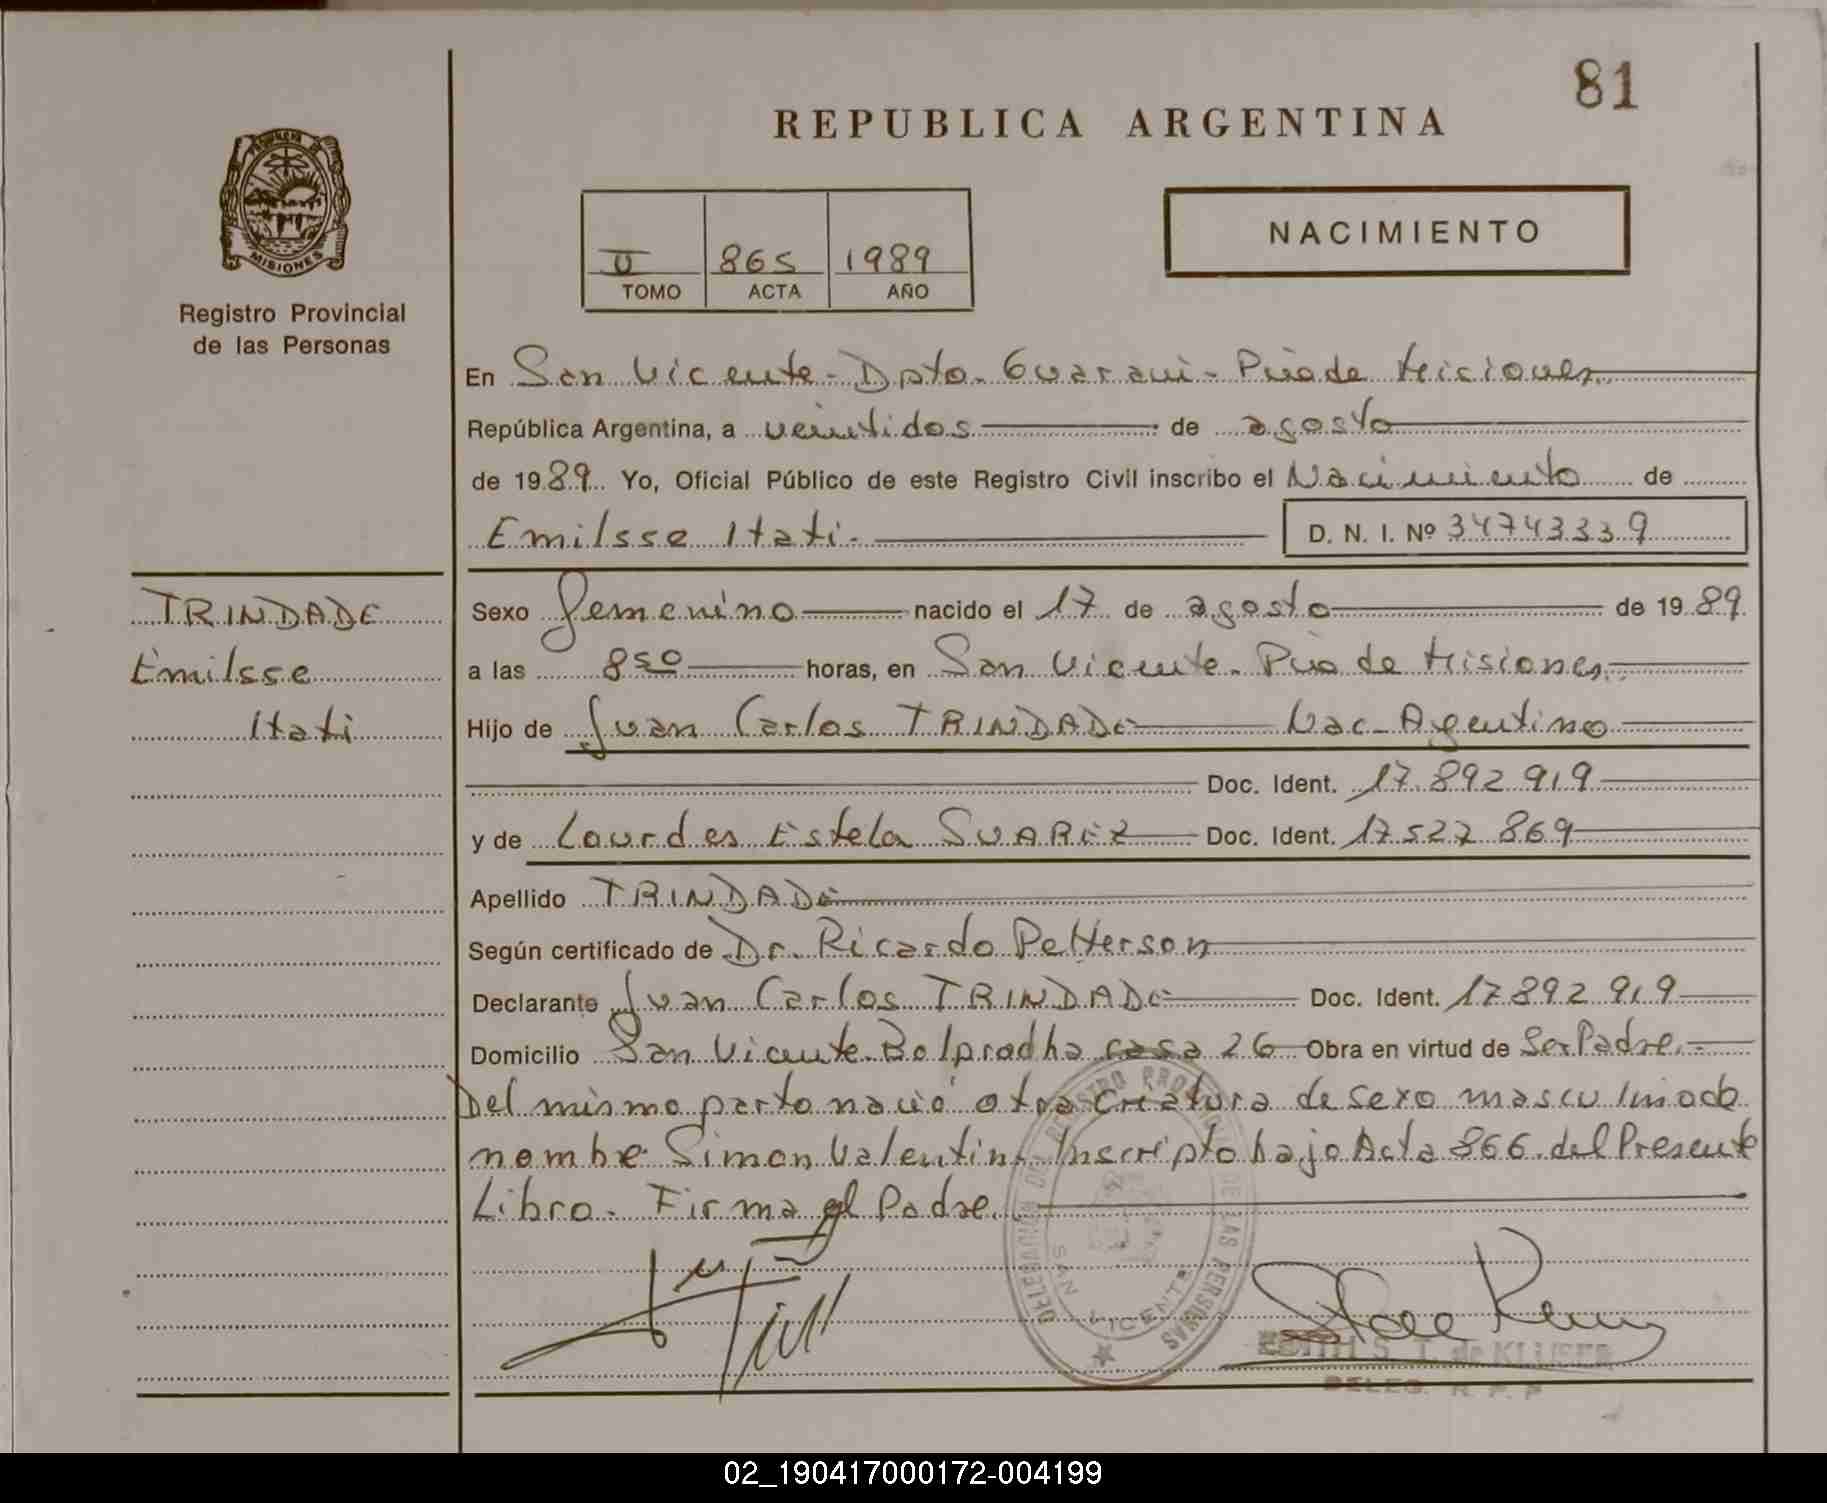 81
REPUBLICA ARGENTINA
PROVINCIA DE
MISIONES
Registro Provincial
de las Personas
II 865 1989
TOMO ACTA AÑO
NACIMIENTO
En San Vicente - Dpto. Guaraní - Pcia de Misiones
República Argentina, a veintidos de agosto
de 1989 Yo, Oficial Público de este Registro Civil inscribo el Nacimiento de
Emilsse Itati. D. N. I. Nº 34743339
TRINDADE
Emilsse
Itati
Sexo femenino nacido el 17 de agosto de 1989
a las 8 50 horas, en San Vicente - Pcia de Misiones
Hijo de Juan Carlos TRINDADE Nac - Agentino
Doc. Ident. 17.892 919
y de Lourdes Estela SUAREZ Doc. Ident. 17527 869
Apellido TRINDADE
Según certificado de Dr. Ricardo Petterson
Declarante Juan Carlos TRINDADE Doc. Ident. 17892 919
Domicilio San Vicente - Bo Ipradha casa 26 Obra en virtud de Ser Padre.-
Del mismo parto nació otra criatura de sexo masculino de
nombre Simon Valentin. Inscripto bajo Acta 866 del Presente
Libro. Firma el Padre.
DELEGACION DEL REGISTRO PROVINCIAL DE LAS PERSONAS
SAN VICENTE
EDITH S. T. de
DELEG. R. P. P
02_190417000172-004199